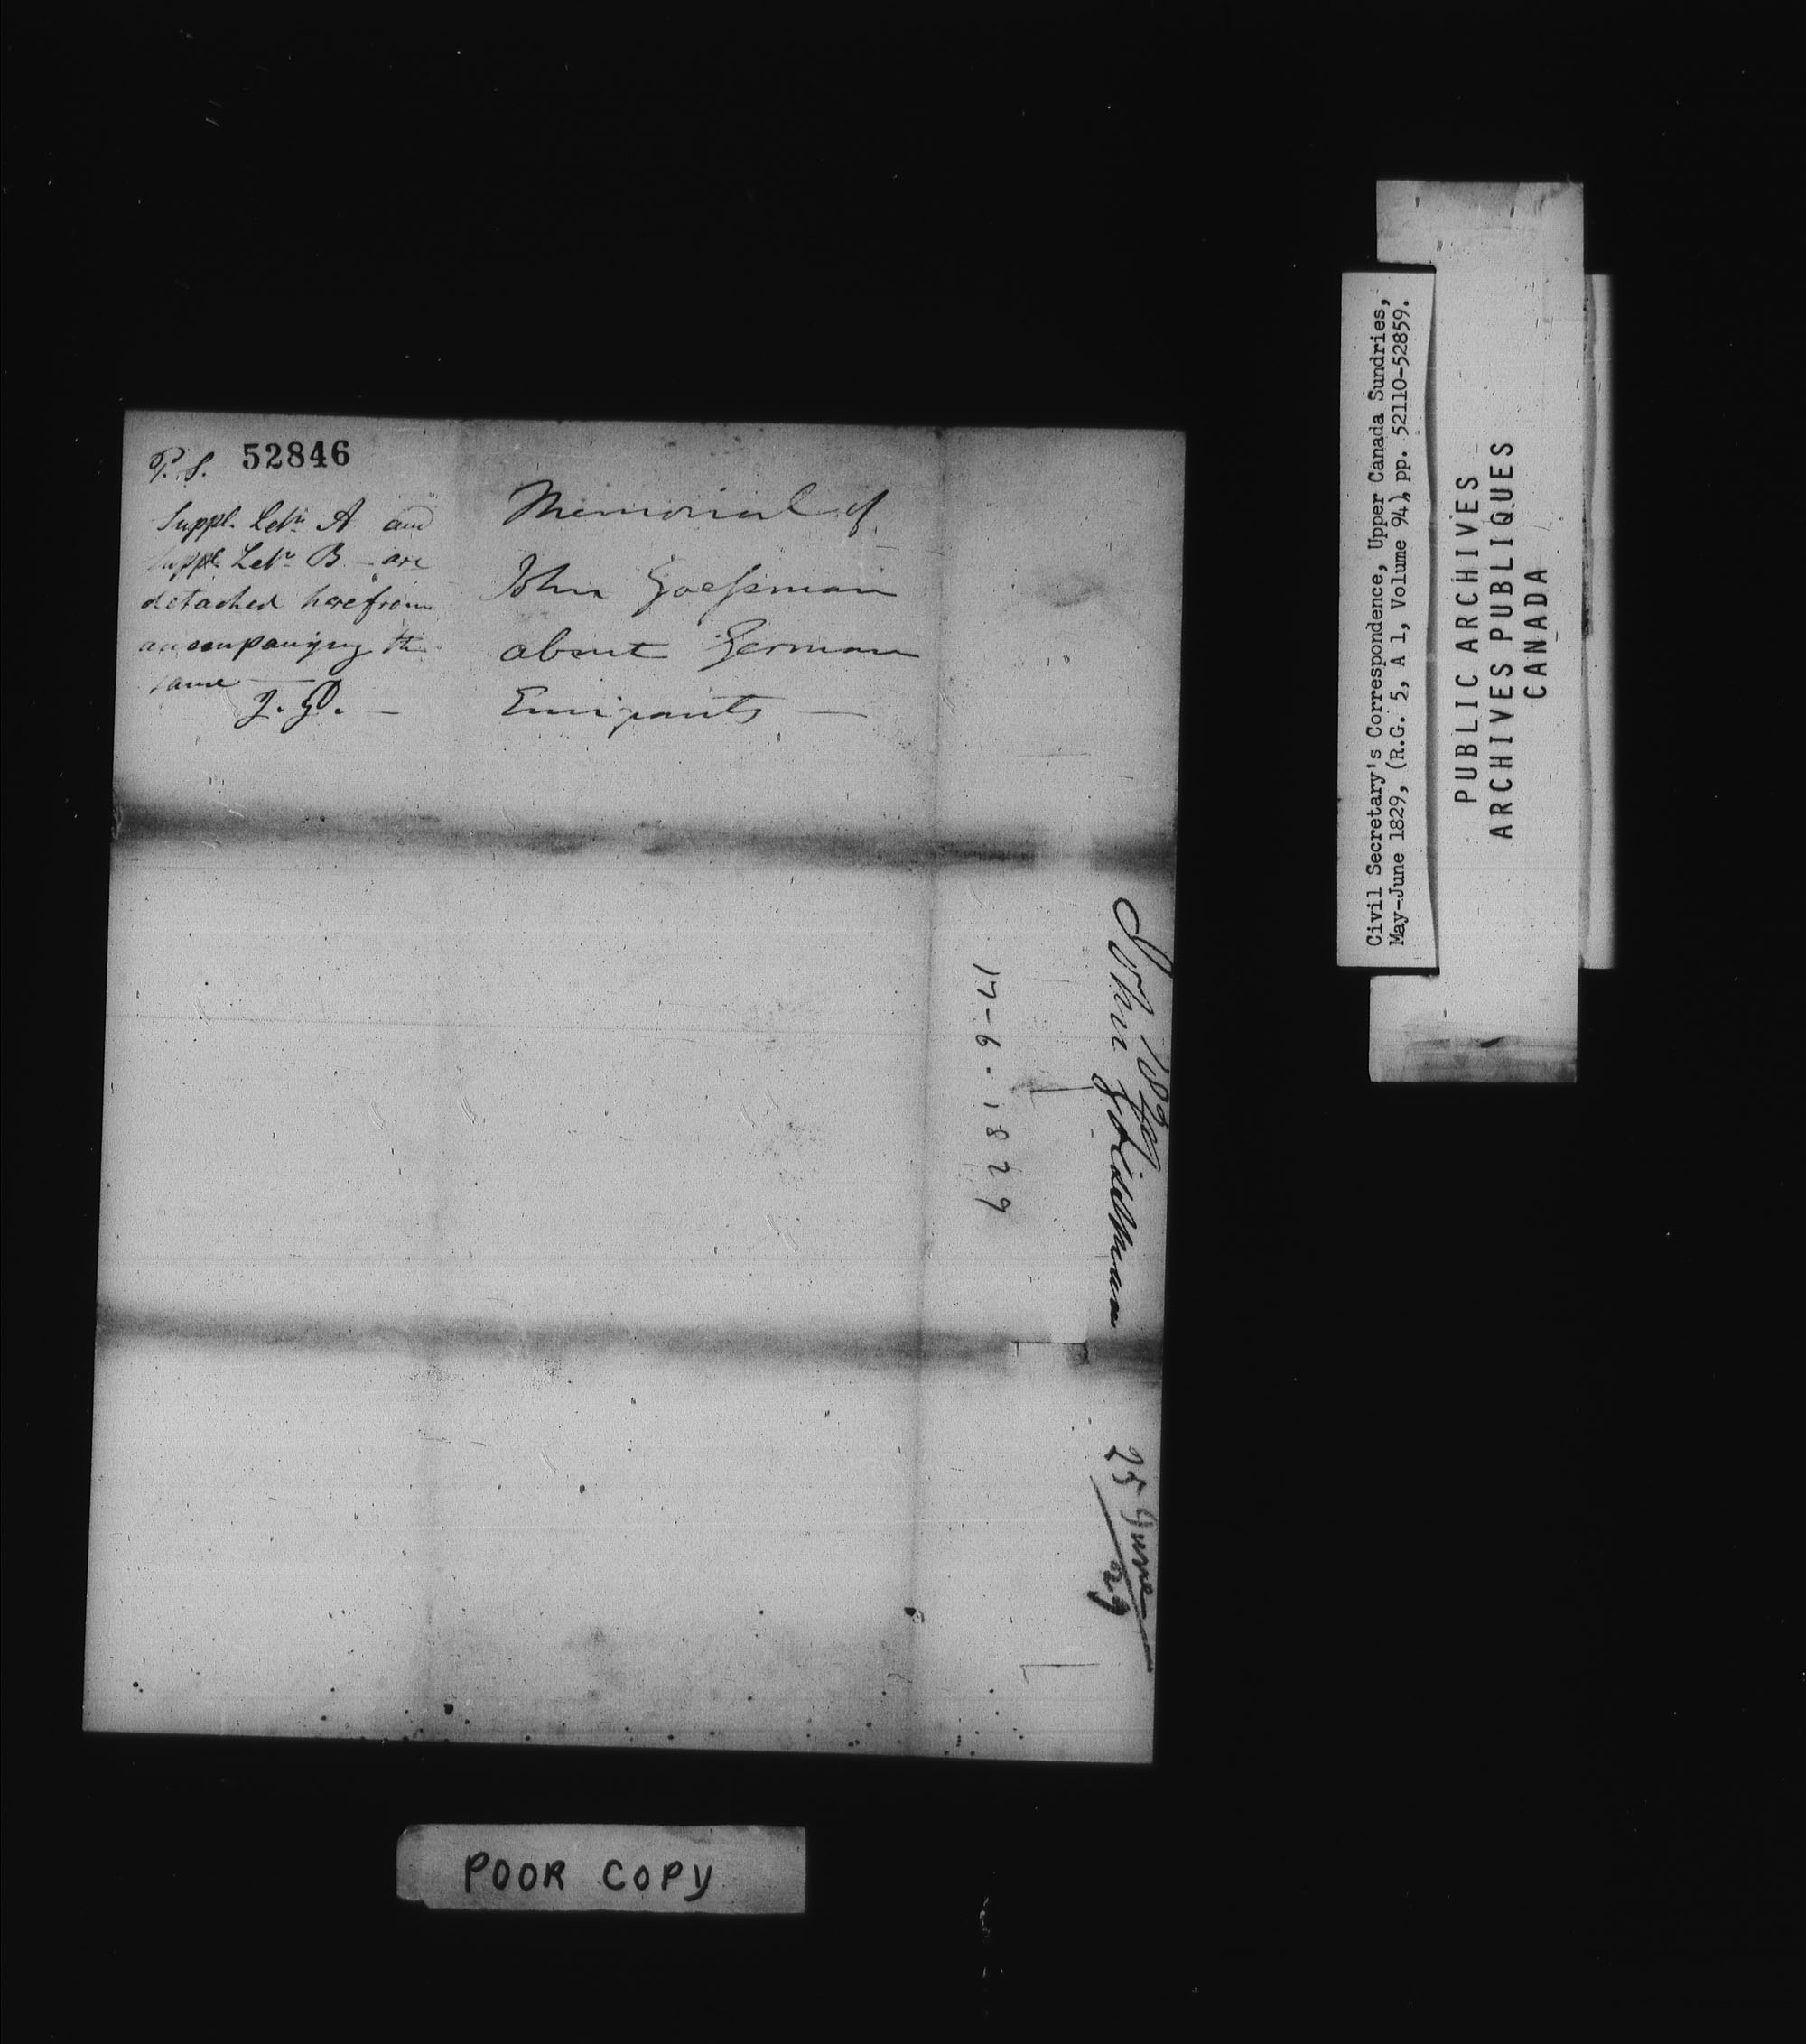 52846
P. S.
Suppl. Letr. A and
Suppl. Letr. B — are
detached herefrom
accompanying the
same —
J. G. —
Memorial of
John Goessman
about German
Emigrants —
17-6.1829
John
25 June
29
Civil Secretary's Correspondence, Upper Canada Sundries,
May-June 1829, (R.G. 5, A 1, Volume 94), pp. 52110-52859.
PUBLIC ARCHIVES
ARCHIVES PUBLIQUES
CANADA
POOR COPY